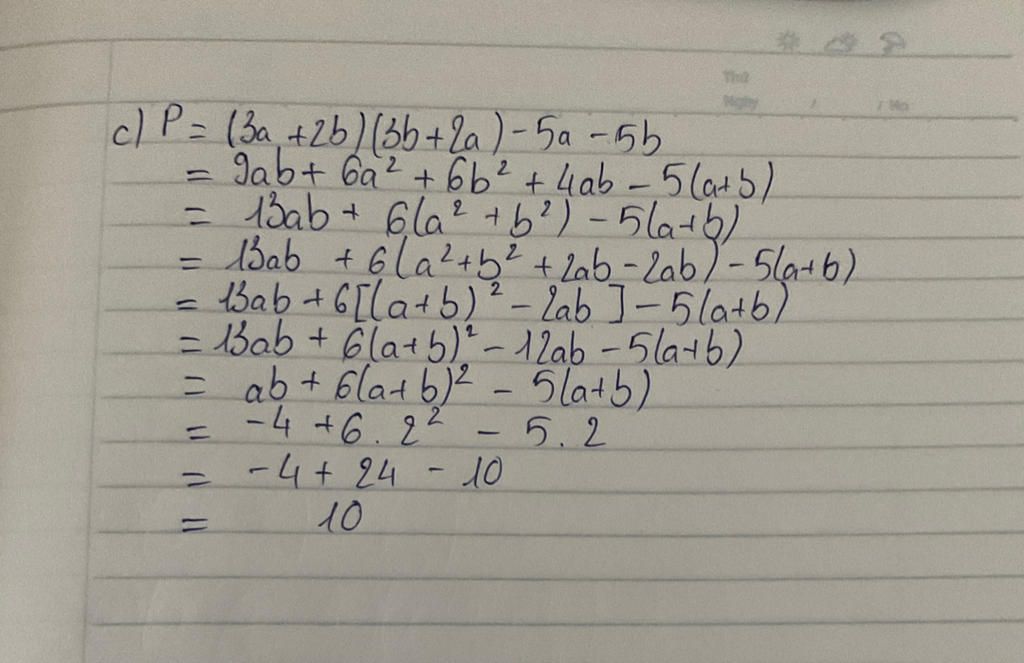 Thứ
Ngày / / No
c) P = (3a + 2b)(3b + 2a) - 5a - 5b
= 9ab + 6a² + 6b² + 4ab - 5(a+b)
= 13ab + 6(a² + b²) - 5(a+b)
= 13ab + 6(a² + b² + 2ab - 2ab) - 5(a+b)
= 13ab + 6[(a+b)² - 2ab] - 5(a+b)
= 13ab + 6(a+b)² - 12ab - 5(a+b)
= ab + 6(a+b)² - 5(a+b)
= -4 + 6 . 2² - 5 . 2
= -4 + 24 - 10
= 10